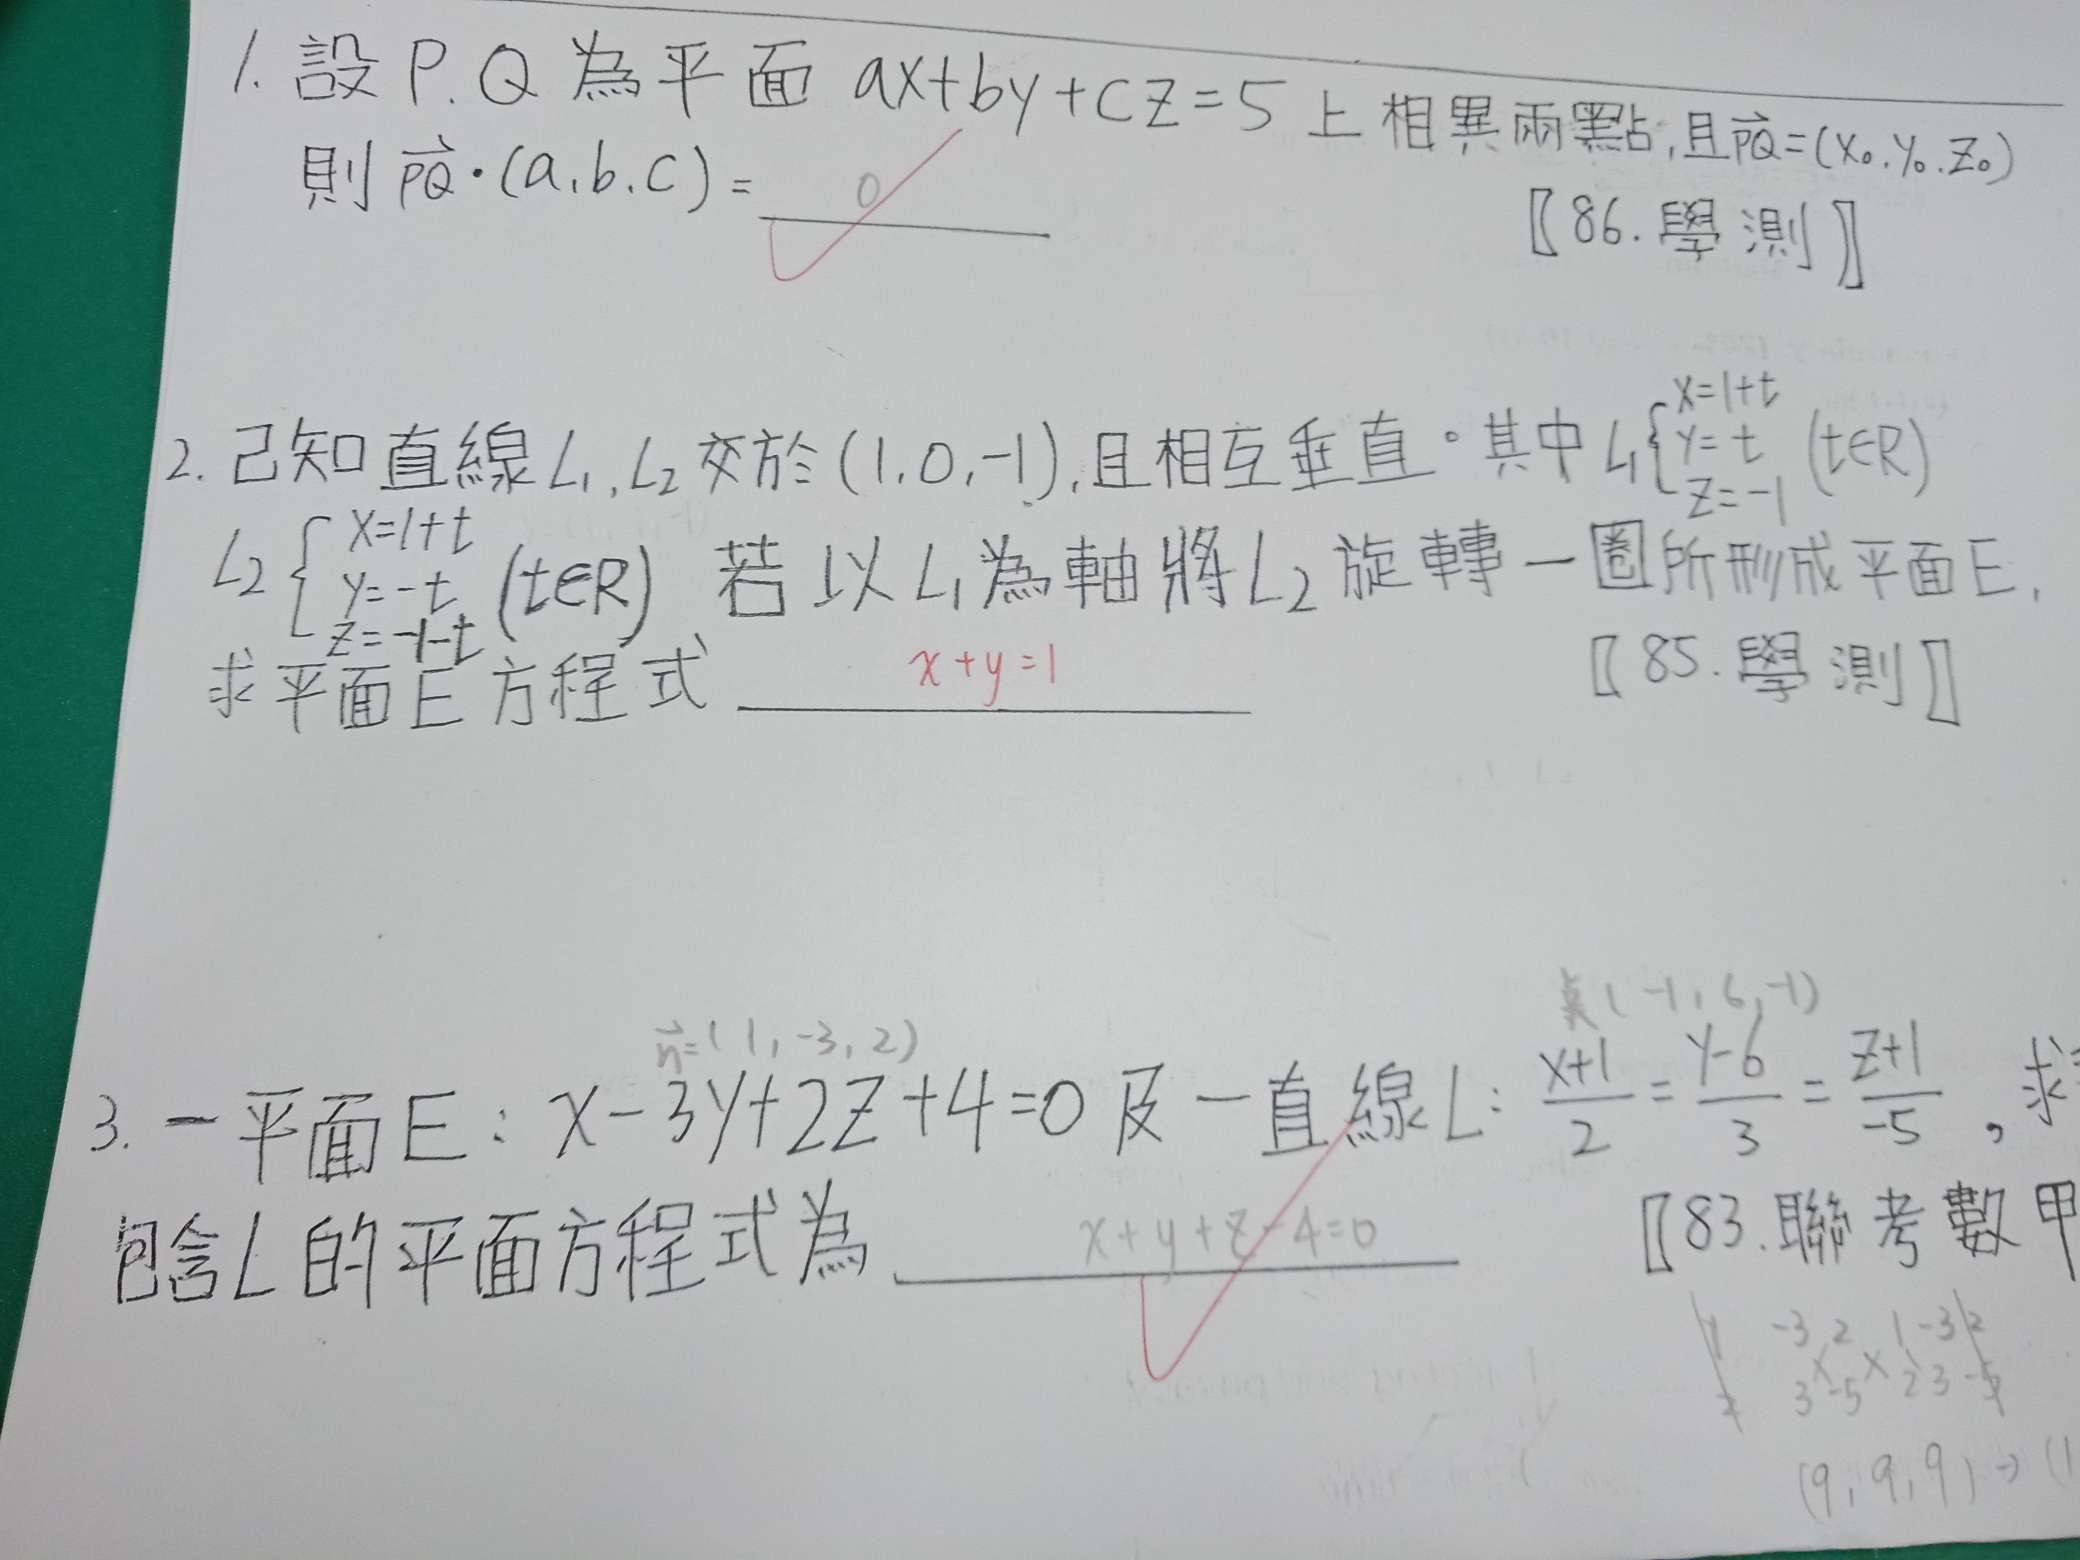 1. 設 P.Q 為平面 ax+by+cz=5 上相異兩點,且PQ=(x₀.y₀.z₀)
則 PQ·(a.b.c)= 0
〖86.學測〗
2. 己知直線L₁.L₂交於(1.0.-1),且相互垂直。其中 L₁{x=1+t y=t z=-1 (t∈R)
L₂{x=1+t y=-t z=-1-t (t∈R) 若以L₁為軸將L₂旋轉一圈所形成平面E,
求平面E方程式 x+y=1
〖85.學測〗
n=(1,-3,2)
(-1,6,-1)
3. 一平面E: x-3y+2z+4=0 及一直線L: x+1/2 = y-6/3 = z+1/-5 , 求
包含L的平面方程式為 x+y+z-4=0
〖83.聯考數甲
-3 2 1 -3 2
3 -5 2 3 -5
(9,9,9)→(1